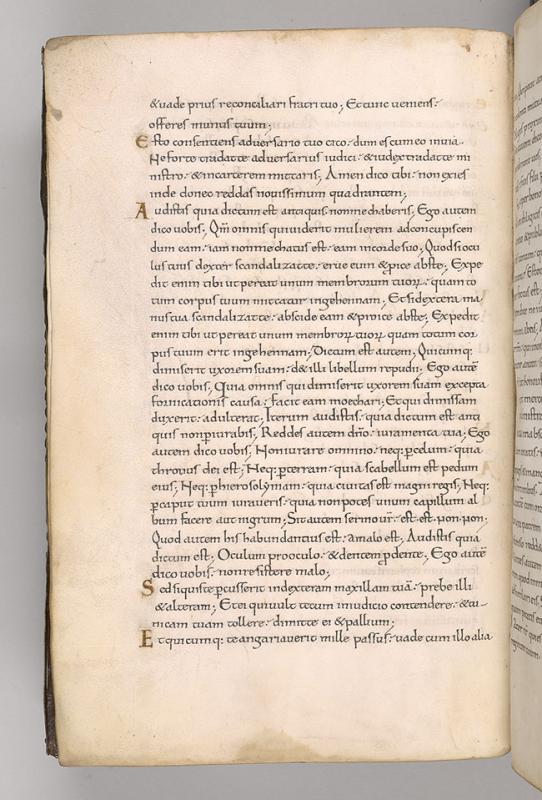 &uade prius reconciliari fratri tuo; Et tunc ueniens:
offeres munus tuum;
Esto consentiens aduersario tuo cito: dum es cum eo in uia.
Ne forte tradat te aduersarius iudici: & iudex tradat te mi
nistro: & in carcerem mittaris; Amen dico tibi: non exies
inde donec reddas nouissimum quadrantem;
Audistis quia dictum est antiquis non mechaberis; Ego autem
dico uobis; Qm̅ omnis qui uiderit mulierem ad concupiscen
dum eam: iam mechatus est: eam in corde suo; Quod si ocu
lus tuus dexter scandalizat te: erue eum & proice abs te; Expe
dit enim tibi ut pereat unum membrorum tuorꝝ: quam to
tum corpus tuum mittatur in gehennam; Et si dextera ma
nus tua scandalizat te: abscide eam & proice abs te; Expedit
enim tibi ut pereat unum membrorꝝ tuorꝝ quam totum cor
pus tuum erit in gehennam; Dictum est autem; Quicumq:
dimiserit uxorem suam: d& illi libellum repudii; Ego aute̅
dico uobis; Quia omnis qui dimiserit uxorem suam excepta
fornicationis causa: facit eam moechari; Et qui dimissam
duxerit: adulterat; Iterum audistis: quia dictum est anti
quis non piurabis; Reddes autem dn̅o: iuramenta tua; Ego
autem dico uobis; Non iurare omnino: neq: ꝑ celum: quia
thronus dei est; Neq: ꝑ terram: quia scabellum est pedum
eius; Neq: ꝑ hierosolymam: quia ciuitas est magni regis; Neq:
ꝑ caput tuum iuraueris: quia non potes unum capillum al
bum facere aut nigrum; Sit autem sermo ur̅: est: est: non: non;
Quod autem his habundantius est: a malo est; Audistis quia
dictum est; Oculum pro oculo: & dentem ꝓ dente; Ego aute̅
dico uobis: non resistere malo;
Sed si quis te ꝑcusserit in dexteram maxillam tua̅: prebe illi
& alteram; Et ei qui uult tecum in iudicio contendere: & tu-
nicam tuam tollere: dimitte ei & pallium;
Et quicumq: te angariauerit mille passus: uade cum illo alia